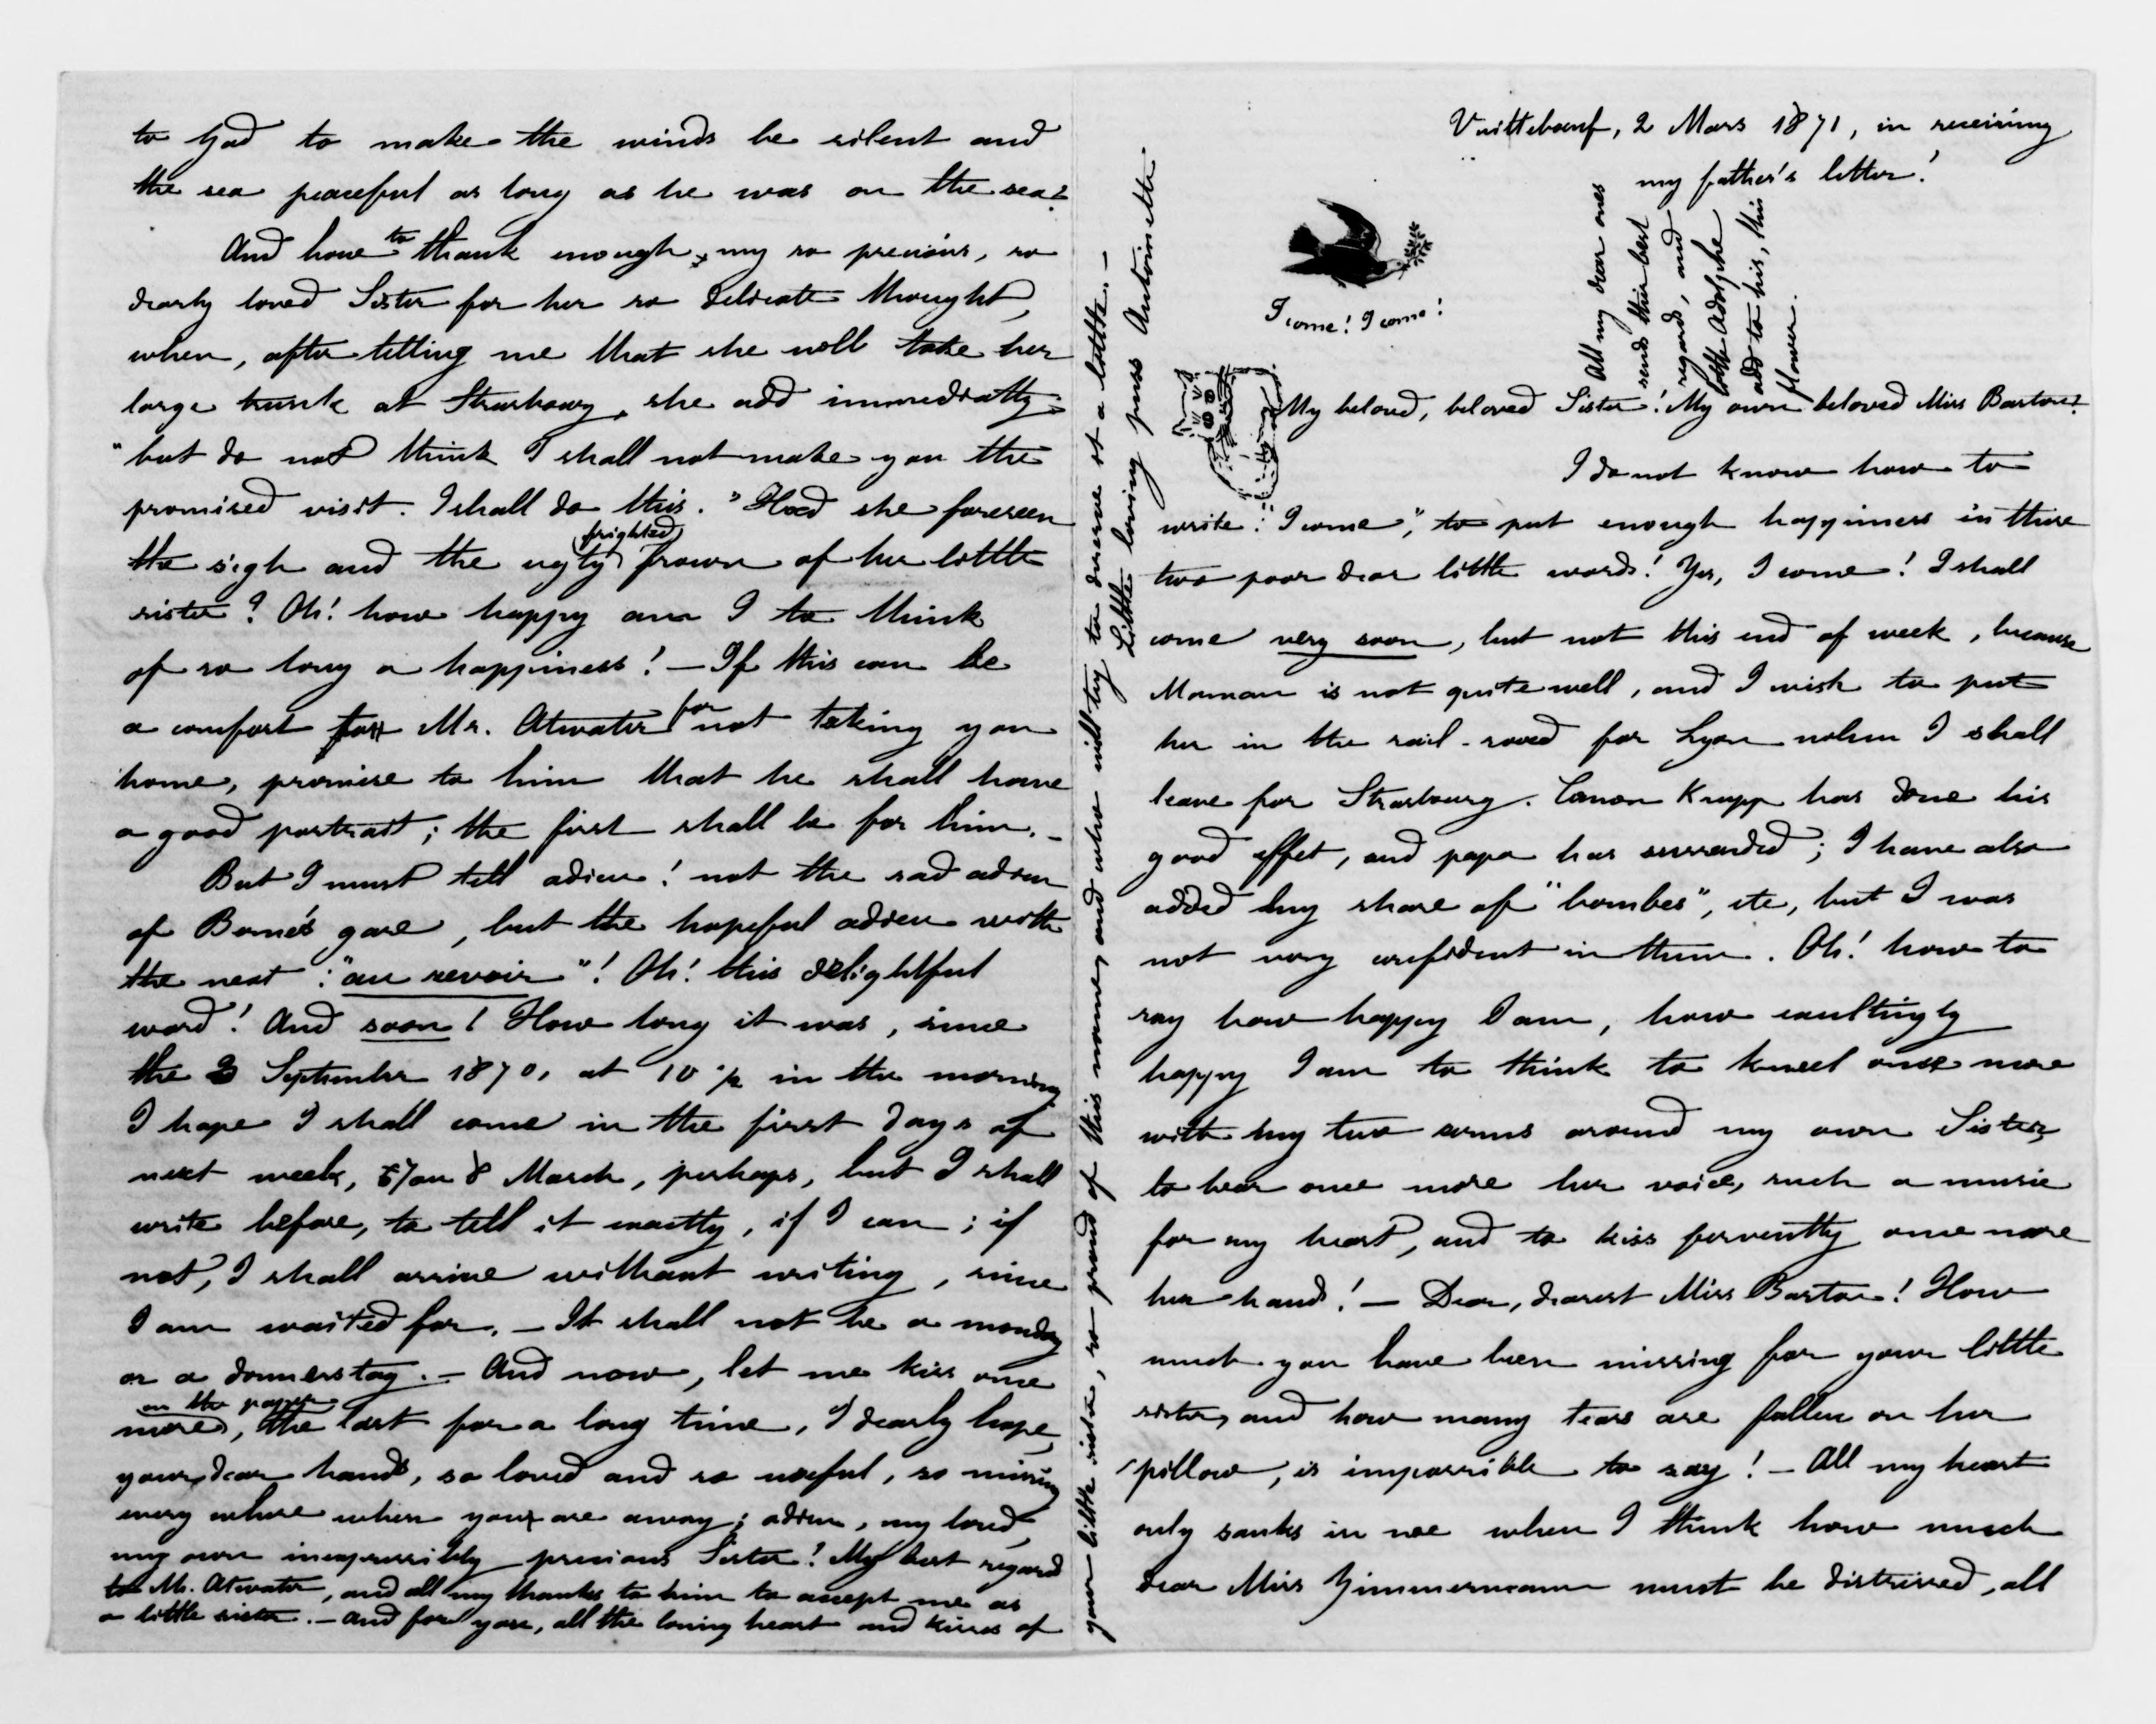 Vuitteboeuf, 2 Mars 1871, in receiving
my father's letter!
All my dear ones
send their best
regard, and
little Adolphe
add to his, this
flower.
I come! I come!
My beloved, beloved Sister! My own beloved Miss Barton!
I do not know how to
write: "I come", to put enough happiness in these
two poor dear little words! Yes, I come! I shall
come very soon, but not this end of week, because
Maman is not quite well, and I wish to put
her in the rail-road for Lyon when I shall
leave for Strasbourg. Canon Krupp has done his
good effet, and papa has surrended; I have also
added my share of "bombes", etc, but I was
not very confident in them. Oh! how to
say how happy I am, how exultingly
happy I am to think to kneel once more
with my two arms around my own Sister,
to hear once more her voice, such a music
for my heart, and to kiss fervently once more
her hand! — Dear, dearest Miss Barton! How
much you have been missing for your little
sister, and how many tears are fallen on her
pillow, is impossible to say! — All my heart
only sanks in me when I think how much
dear Miss Zimmermann must be distressed, all
to God to make the winds be silent and
the sea peaceful as long as he was on the sea?
And how to thank enough my so precious, so
dearly loved Sister for her so delicate thought,
when, after telling me that she will take her
large trunk at Strasbourg, she add immediatly:
"but do not think I shall not make you the
promised visit. I shall do this." Had she foreseen
the sigh and the ugly (frighted) frown of her little
sister? Oh! how happy am I to think
of so long a happiness! — If this can be
a comfort for Mr. Atwater for not taking you
home, promise to him that he shall have
a good portrait; the first shall be for him. —
But I must tell adieu! not the sad adieu
of Berne's gare, but the hopeful adieu with
the next: "au revoir"! Oh! this delightful
word! And soon! How long it was, since
the 3 September 1870, at 10 ½ in the morning
I hope I shall come in the first days of
next week, 7 ou 8 March, perhaps, but I shall
write before, to tell it exactly, if I can; if
not, I shall arrive without writing, since
I am waited for. — It shall not be a monday
or a donnerstag. — And now, let me kiss once
more on the paper, the last for a long time, I dearly hope,
your dear hands, so loved and so useful, so missing
every where when you are away; adieu, my loved,
my own inexpressibly precious Sister! My best regard
to Mr. Atwater, and all my thanks to him to accept me as
a little sister. — And for you, all the loving heart and kisses of
your little sister, so proud of this name, and who will try to deserve it a little. —
Little loving puss Antoinette.